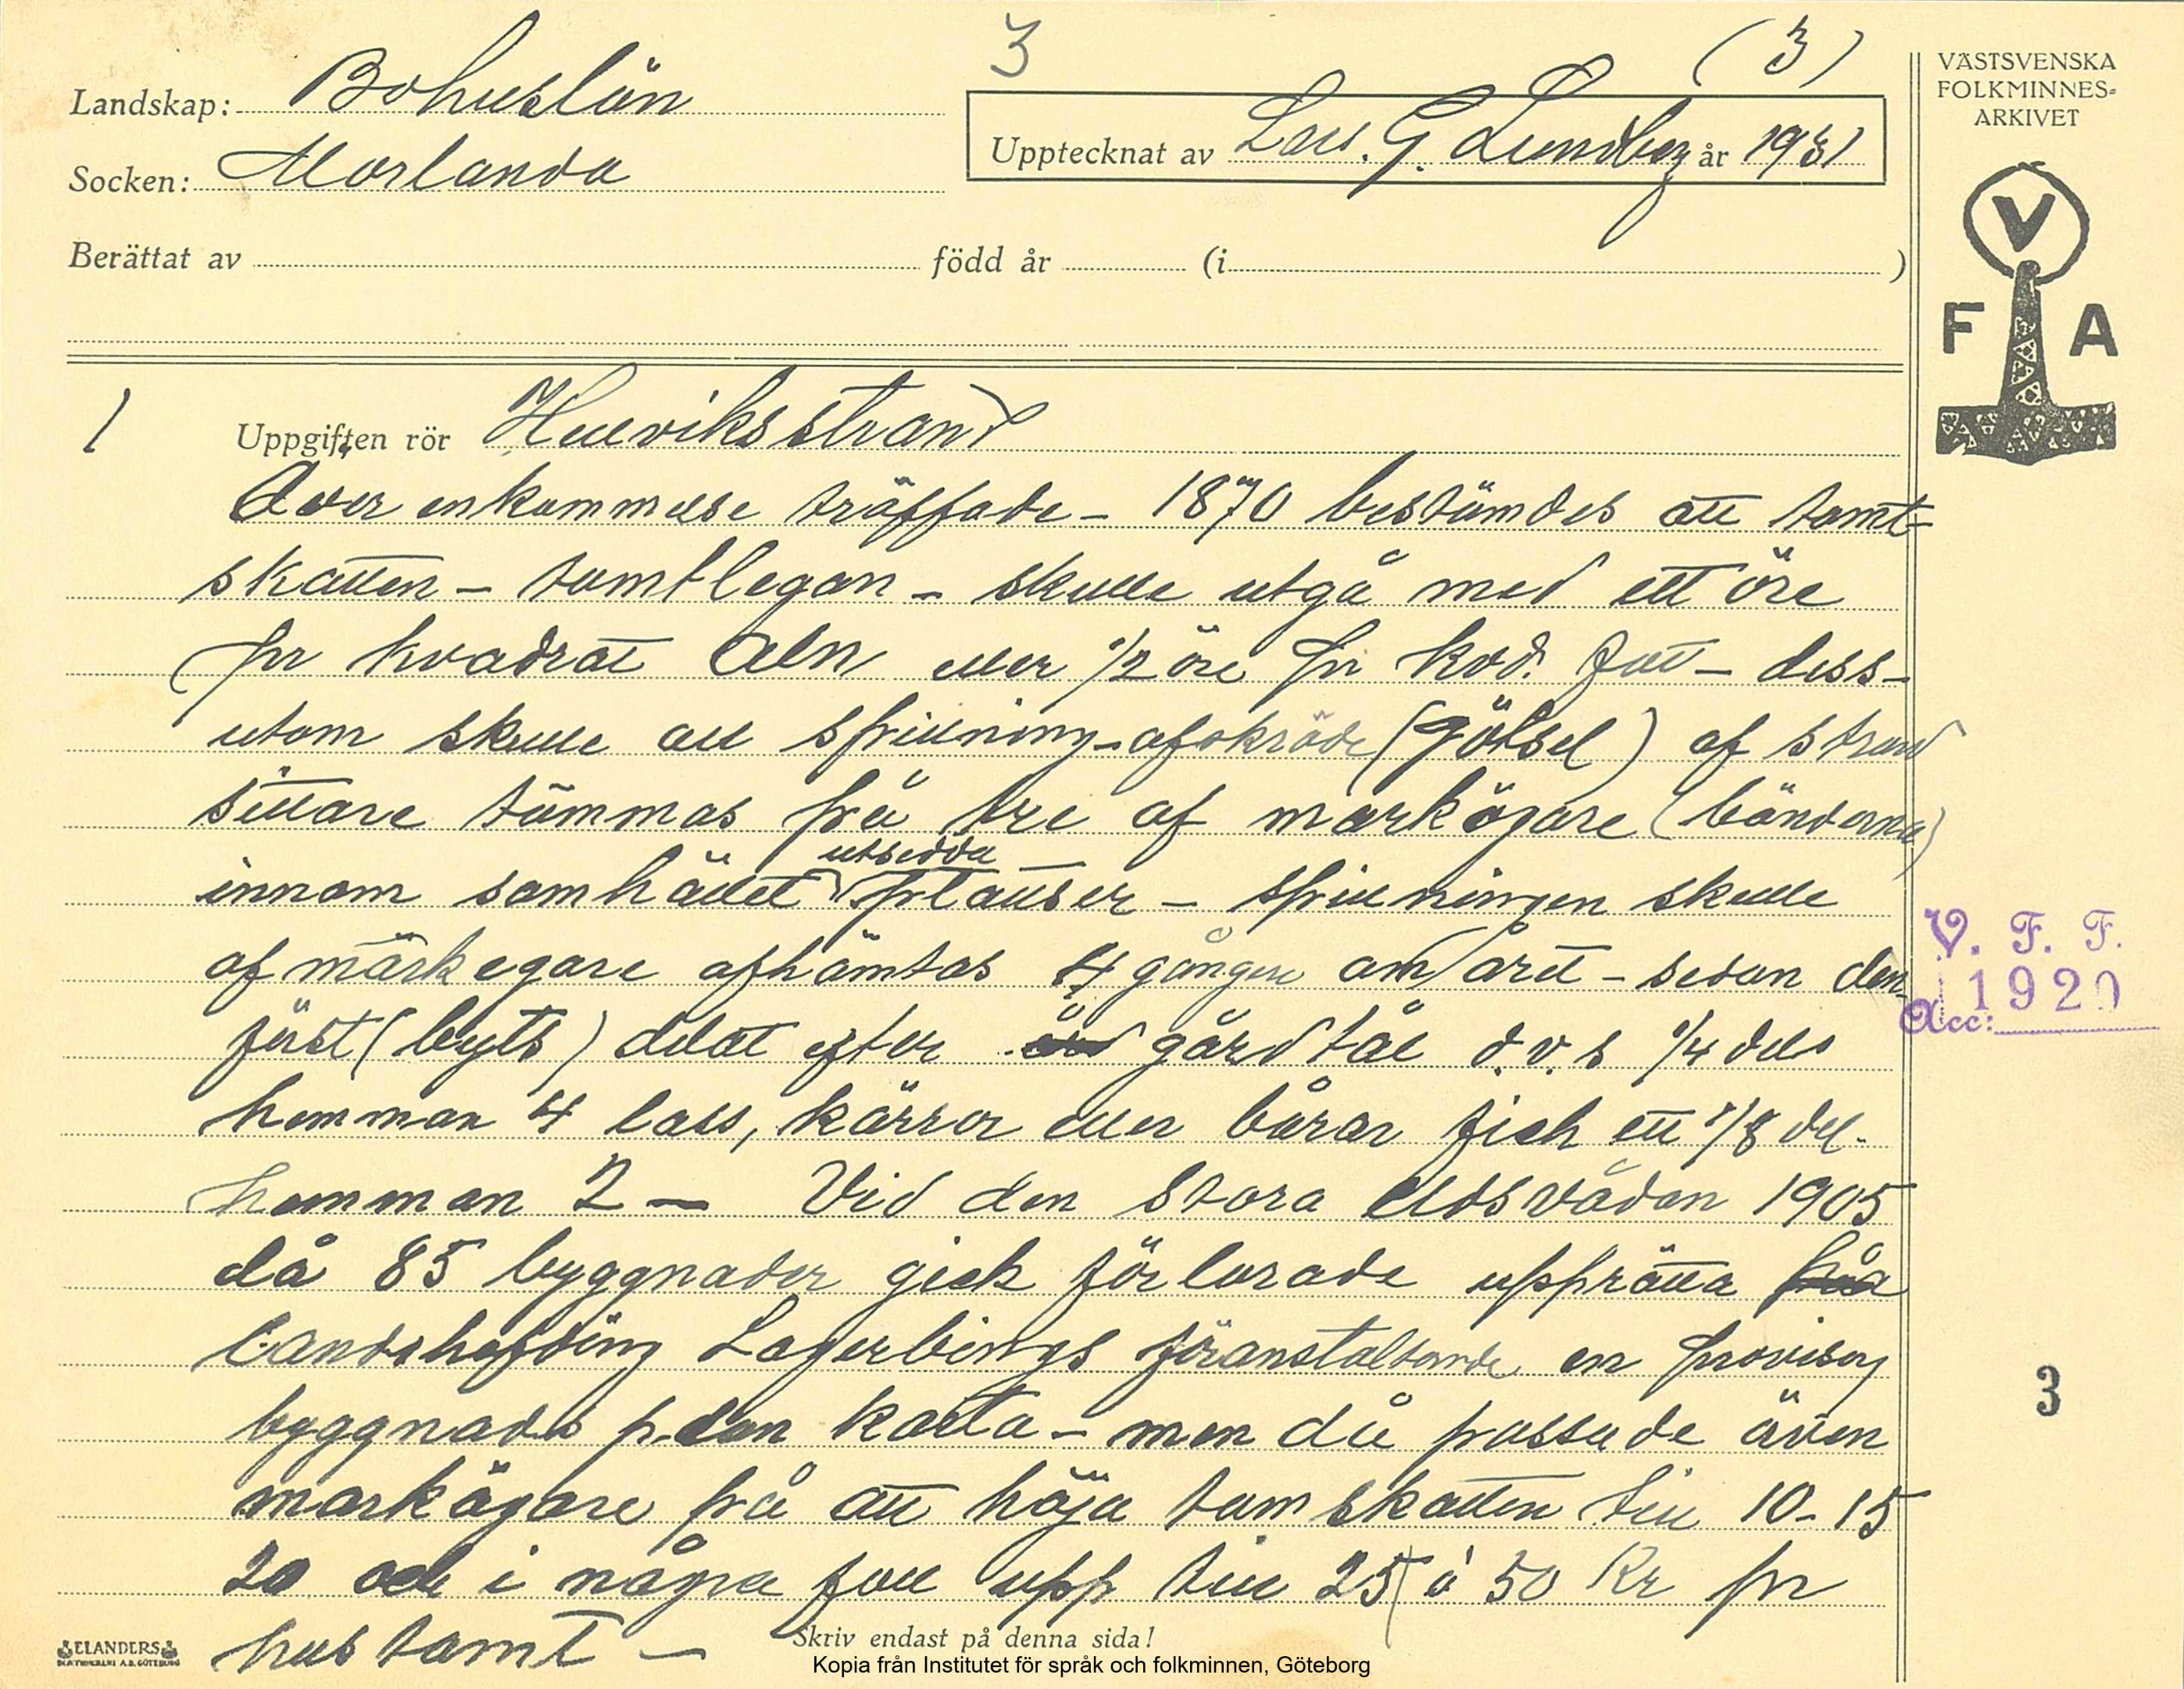 3
(3)
Landskap: Bohuslän
Socken: Morlanda
Upptecknat av Lars. G. Lundberg år 1931
Berättat av född år (i )
VÄSTSVENSKA
FOLKMINNES=
ARKIVET
V
F A
1
Uppgiften rör Hellviksstrand
Över enkommelse träffade - 1870 bestämdes att tomt-
skatten - tomtlegan - skulle utgå med ett öre
pr kvadrat Aln eller 1/2 öre pr kvd. fot - dess-
utom skulle all spillning-afskräde (gödsel) af strand
sittare tömmas på tre af markägare (bönderna)
innom samhället utsedda platser - spillningen skulle
af markegare afhämtas 4 gånger om året - sedan den
först (byts) delat efter gårdtal d.v.s 1/4 dels
hemman 4 lass, kärror eller bårar fick ett 1/8 del.
hemman 2 - Vid den stora Eldsvådan 1905
då 85 byggnader gick förlorade upprätta på
Landshefding Lagerbrings föranstaltande en provisorj
byggnads p.lan karta - men då passade även
markägare på att höja tom skatten till 10-15
20 och i några fall upp till 25 à 50 Kr pr
hus tomt -
V. F. F.
1920
Acc:
3
ELANDERS
Skriv endast på denna sida!
Kopia från Institutet för språk och folkminnen, Göteborg